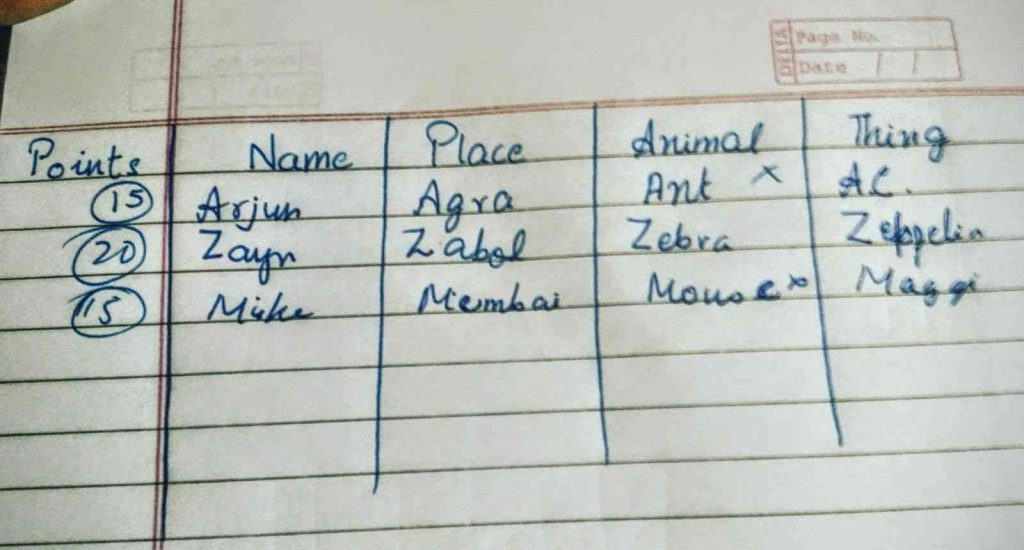 DELTA Page No.
Date / /
Points Name Place Animal Thing
15 Arjun Agra Ant x AC.
20 Zayn Zabol Zebra Zeppelin
15 Mike Mumbai Mouse x Maggi